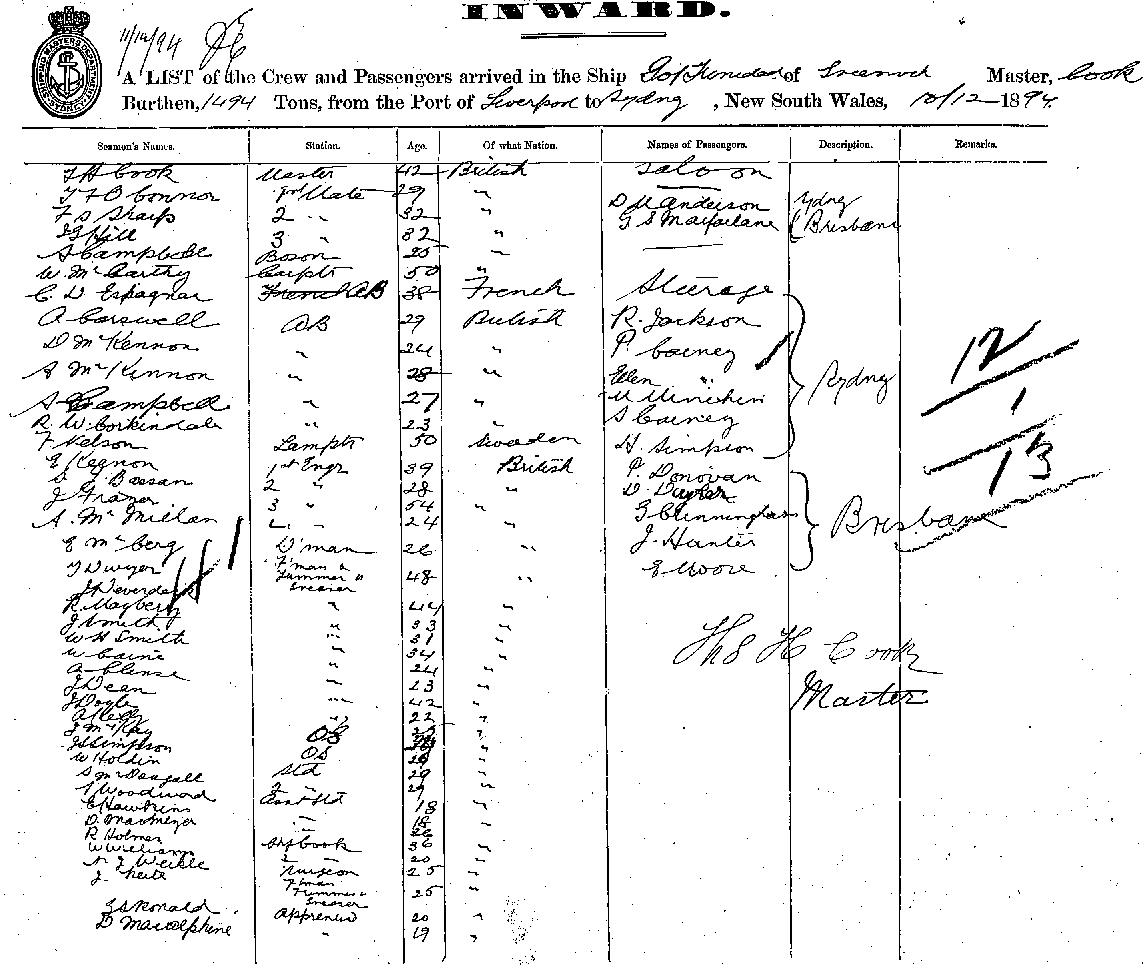 INWARD.
11/12/94
A LIST of the Crew and Passengers arrived in the Ship Gulf of Trinidad of Greenock Master, Cook
Burthen, 1494 Tons, from the Port of Liverpool to Sydney, New South Wales, 10/12 1894
Seamen's Names. Station. Age. Of what Nation. Names of Passengers. Description. Remarks.
T H Cook Master 42 British Saloon
T F O Connor 1st Mate 29 "
F S Sharp 2 " 32 " D M Anderson Sydney
J G Hill 3 " 32 " G S Macfarlane Brisbane
A Campbell Boson 25 "
W. McCarthy Carptr 50 "
C. D Espagnac French AB 38 French Steerage
A Carswell AB 29 British R. Jackson
D McKennon " 24 " P. Cainey
A McKennon " 28 " Ellen " Sydney 12
A Campbell " 27 " 1
R. W. Corkindale " 23 S Cainey
F Nelson Lamptr 50 Sweden H. Simpson 13
E Kegnon 1st Engr 39 British P. Donovan
2 " 28 " D.
J Frazer 3 " 54 G Cunningham Brisbane
A. McMillan 4 " 24 " J. Hunter
E McBerg D'man 26 " E Moore
T Dwyer F'man & Trimmer & Greaser 48 "
41
R. Mayberry " 44 "
J Smith " 33 " Ths H Cook
W H Smith " 31 "
W Caine " 34 "
" 24 " Master
J Dean " 23 "
J Doyle " 42 "
A Kelly " 22 "
J McKay
J S Simpson OS
W Holdin OS 29 "
S McDougall Std 29 "
T Woodward 2 " 29 "
E Hawkins Asst Std 18 "
D. 18 "
R Holmes 26 "
W Williams Shp Cook 36 "
2 " 20 "
J. Surgeon 25 "
F'man Trimmer & Greaser 25 "
J S Ronald Apprentice 20 "
D MacAlphine " 19 "